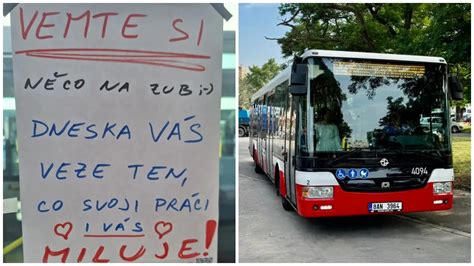 VEMTE SI
NĚCO NA ZUB :-)
DNESKA VÁS
VEZE TEN,
CO SVOJI PRÁCI
I VÁS
MILUJE!
4094
2
8AN 3964